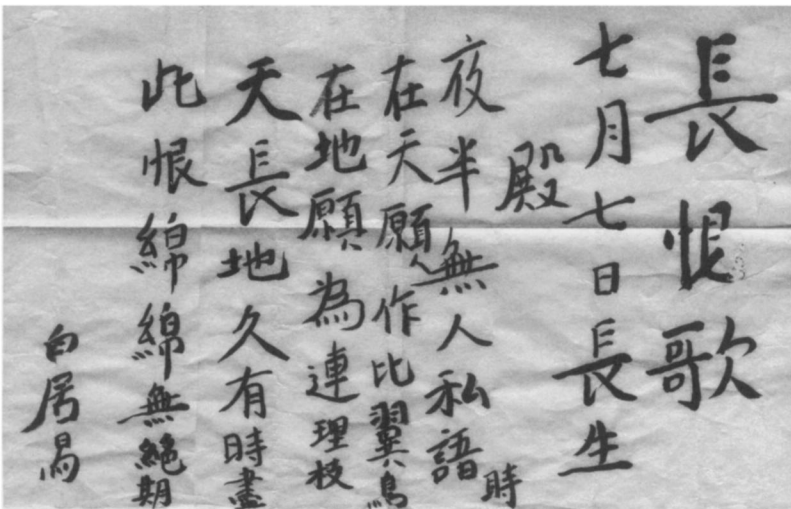 長恨歌
七月七日長生
殿
夜半無人私語
時
在天願作比翼鳥
在地願為連理枝
天長地久有時盡
此恨綿綿無絕期
白居易